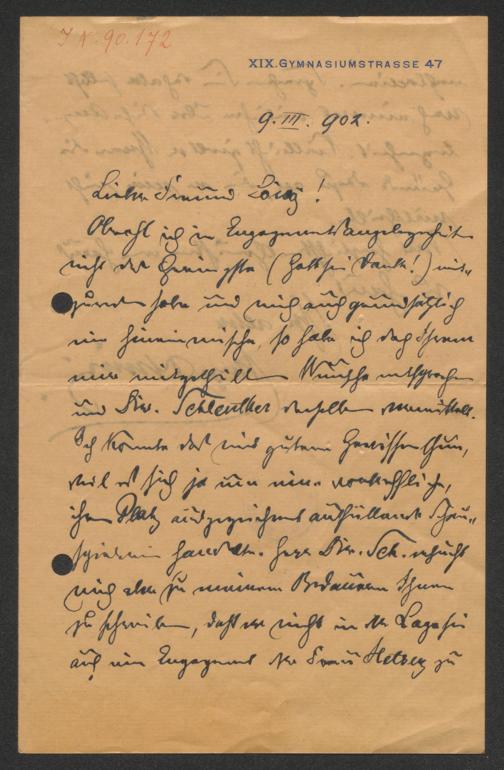 I.N. 90.172
XIX. GYMNASIUMSTRASSE 47
9. III. 902.
Lieber Freund !
Obzwar ich in Engagementsangelegenheiten
nicht das Geringste ( Gott sei Dank! ) mit-
zureden habe und mich auch grundsätzlich
nie hineinmische, so habe ich doch Ihrem
mir mitgetheilten Wunsche entsprochen
und Dir. Schlenther denselben vermittelt.
Ich konnte das mit gutem Gewissen thun,
weil es sich ja um eine vortreffliche,
ihren Platz ausgezeichnet ausfüllende Schau-
spielerin handelte. Herr Dir. Sch. ersucht
mich aber zu meinem Bedauern Ihnen
zu schreiben, daß er nicht in der Lage sei
auf ein Engagement der Frau Hetsey zu